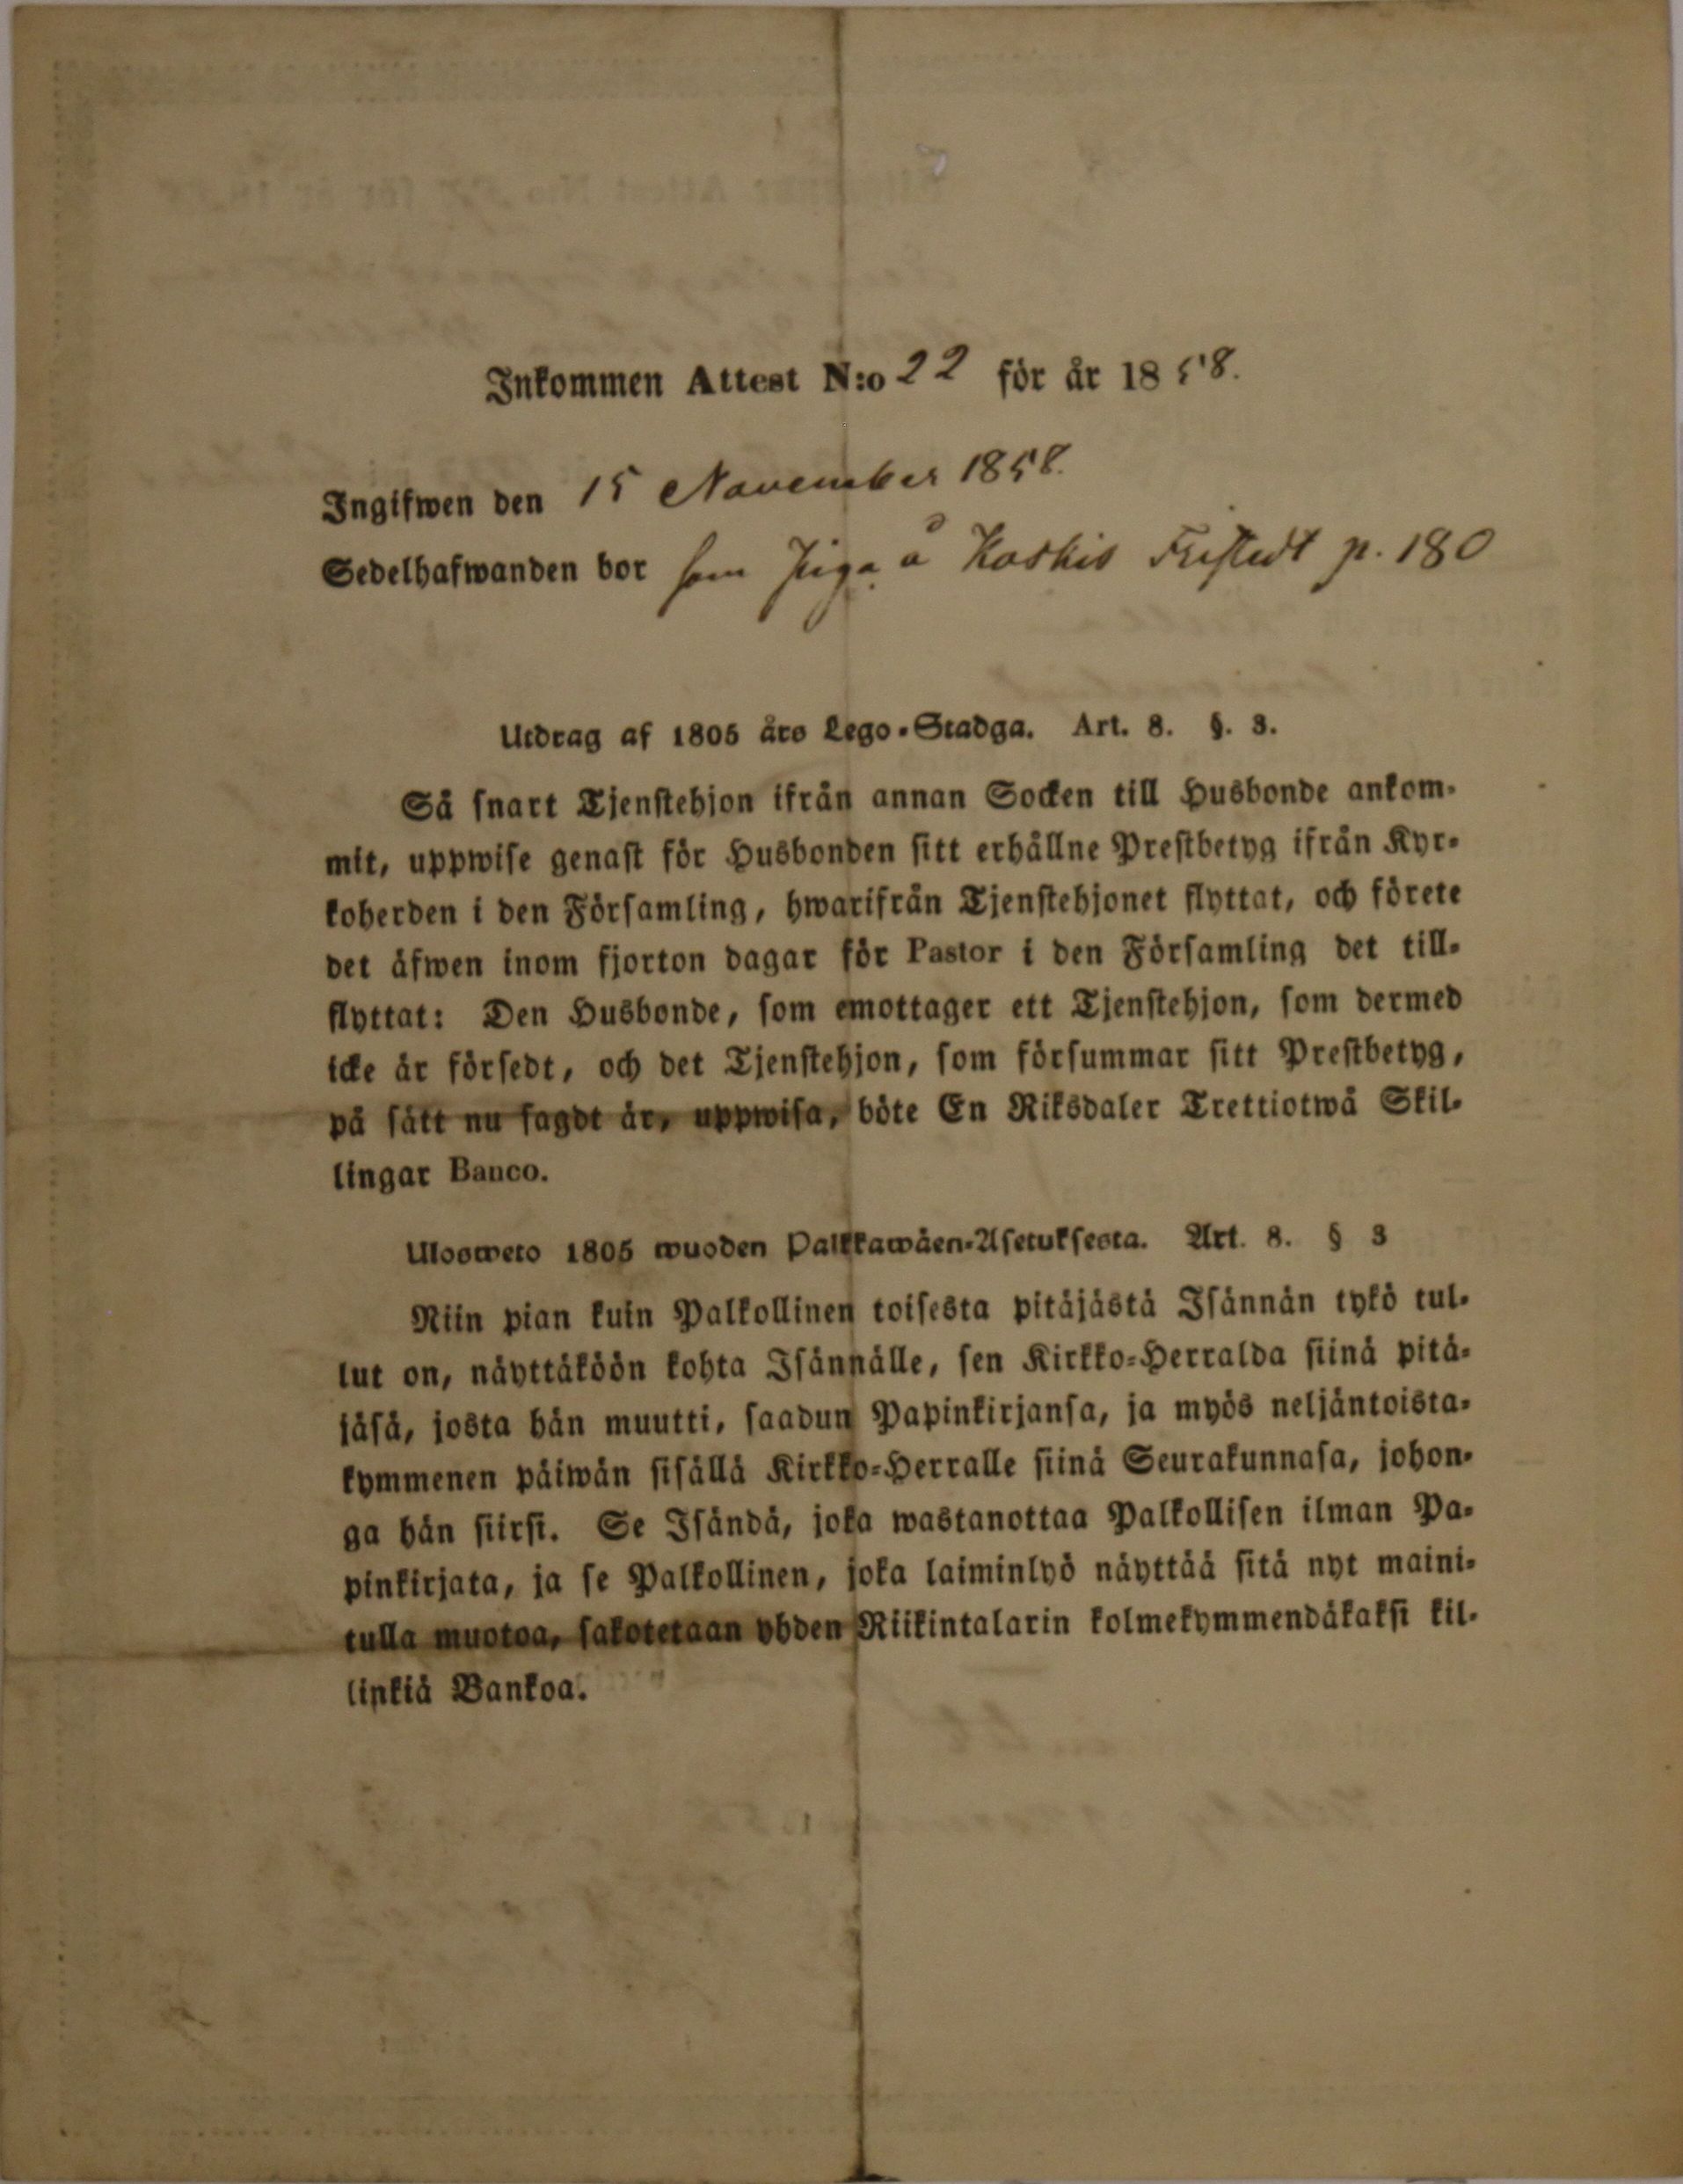 Inkommen Attest N:o 22 för år 1858.
Ingifwen den 15 November 1858.
Sedelhafwanden bor som Piga å Koskis Fristedt p. 180
Utdrag af 1805 års Lego-Stadga. Art. 8. §. 3.
Så snart Tjenstehjon ifrån annan Socken till Husbonde ankom-
mit, uppwise genast för Husbonden sitt erhållne Prestbetyg ifrån Kyr-
koherden i den Församling, hwarifrån Tjenstehjonet flyttat, och förete
det äfwen inom fjorton dagar för Pastor i den Församling det till-
flyttat: Den Husbonde, som emottager ett Tjenstehjon, som dermed
icke är försedt, och det Tjenstehjon, som försummar sitt Prestbetyg,
på sätt nu sagdt är, uppwisa, böte En Riksdaler Trettiotwå Skil-
lingar Banco.
Ulosweto 1805 wuoden Palkkawäen-Asetuksesta. Art. 8. § 3
Niin pian kuin Palkollinen toisesta pitäjästä Isännän tykö tul-
lut on, näyttäköön kohta Isännälle, sen Kirkko-Herralda siinä pitä-
jäsä, josta hän muutti, saadun Papinkirjansa, ja myös neljäntoista-
kymmenen päiwän sisällä Kirkko-Herralle siinä Seurakunnasa, johon-
ga hän siirsi. Se Isändä, joka wastanottaa Palkollisen ilman Pa-
pinkirjata, ja se Palkollinen, joka laiminlyö näyttää sitä nyt maini-
tulla muotoa, sakotetaan yhden Riikintalarin kolmekymmendäkaksi kil-
linkiä Bankoa.